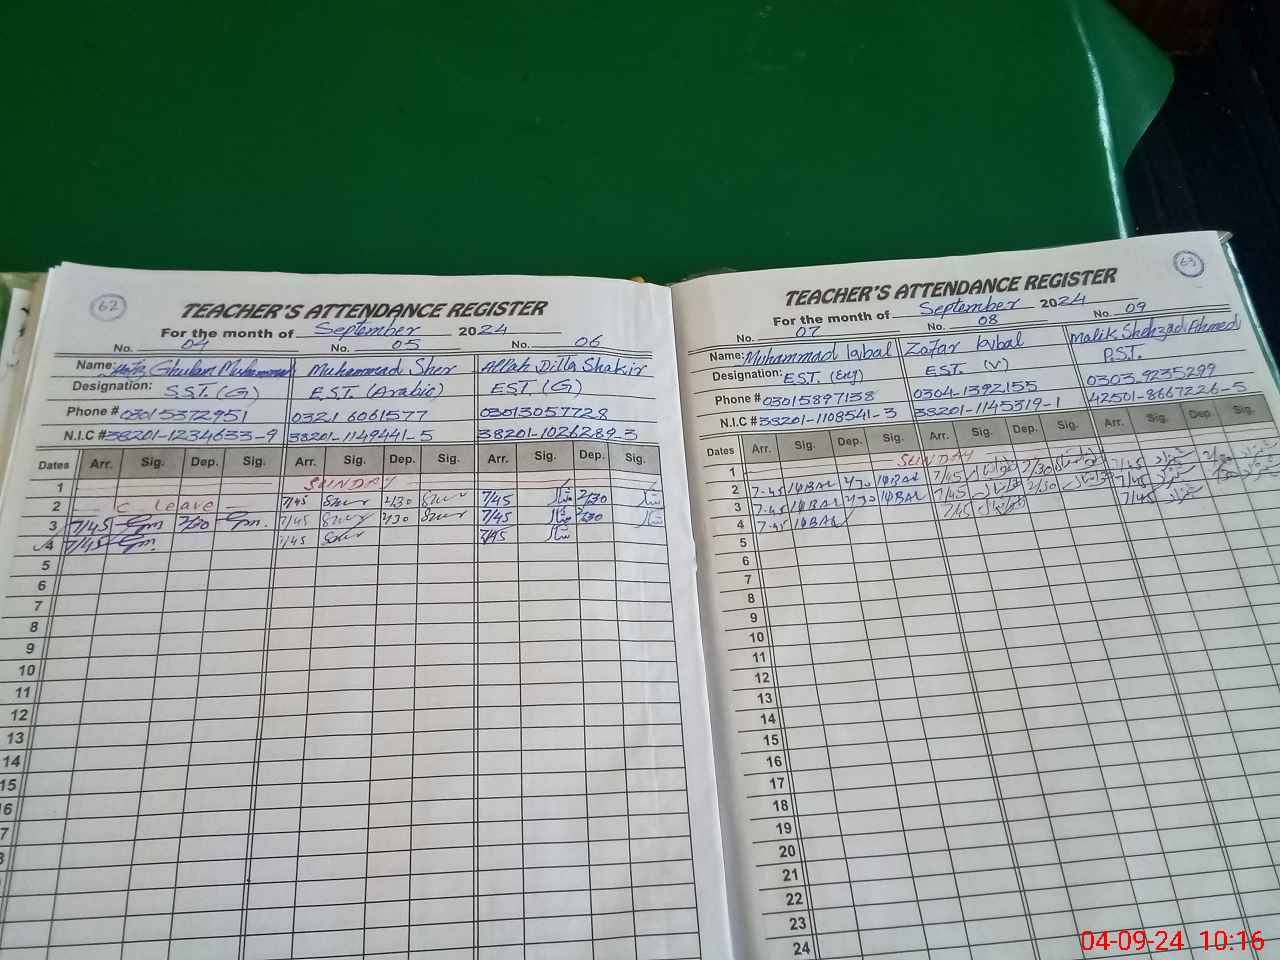 62
TEACHER'S ATTENDANCE REGISTER
For the month of September 2024
No. 04 No. 05 No. 06
Name: Hafiz Ghulam Muhammad Muhammad Sher Allah Ditta Shakir
Designation: S.S.T. (G) E.S.T. (Arabic) EST. (G)
Phone # 03015372951 0321 6061577 03013057728
N.I.C # 38201-1234633-9 38201-1149441-5 38201-1026289-3
Dates Arr. Sig. Dep. Sig. Arr. Sig. Dep. Sig. Arr. Sig. Dep. Sig.
1 SUNDAY
2 C leave 7/45 Sher 2/30 Sher 7/45 شاکر 2/30 شاکر
3 7/45 2/30 7/45 Sher 2/30 Sher 7/45 شاکر 2/30 شاکر
4 7/45 7/45 Sher 7/45 شاکر
5
6
7
8
9
10
11
12
13
14
15
16
7
63
TEACHER'S ATTENDANCE REGISTER
For the month of September 2024
No. 07 No. 08 No. 09
Name: Muhammad Iqbal Zafar Iqbal Malik Shehzad Ahmed
Designation: E.S.T. (Eng) EST. (V) P.S.T.
Phone # 03015897138 0304-1392155 0303-9235299
N.I.C # 38201-1108541-3 38201-1145319-1 42501-8667226-5
Dates Arr. Sig. Dep. Sig. Arr. Sig. Dep. Sig. Arr. Sig. Dep. Sig.
1 SUNDAY
2 7-45 IQBAL 2/30 IQBAL 7/45 2/30 7/45 2/30
3 7-45 IQBAL 2/30 IQBAL 7/45 2/30 7/45
4 7-45 IQBAL 7/45 7/45
5
6
7
8
9
10
11
12
13
14
15
16
17
18
19
20
21
22
23
24
04-09-24 10:16